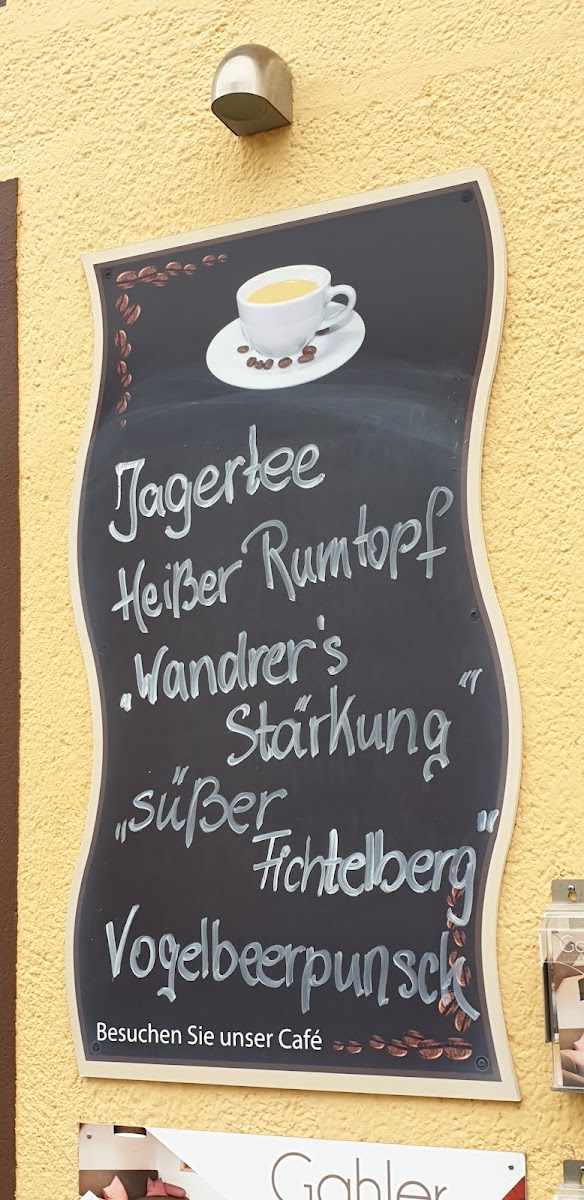 Jagertee
Heißer Rumtopf
„Wandrer's
Stärkung"
„süßer
Fichtelberg"
Vogelbeerpunsch
Besuchen Sie unser Café
Gahler